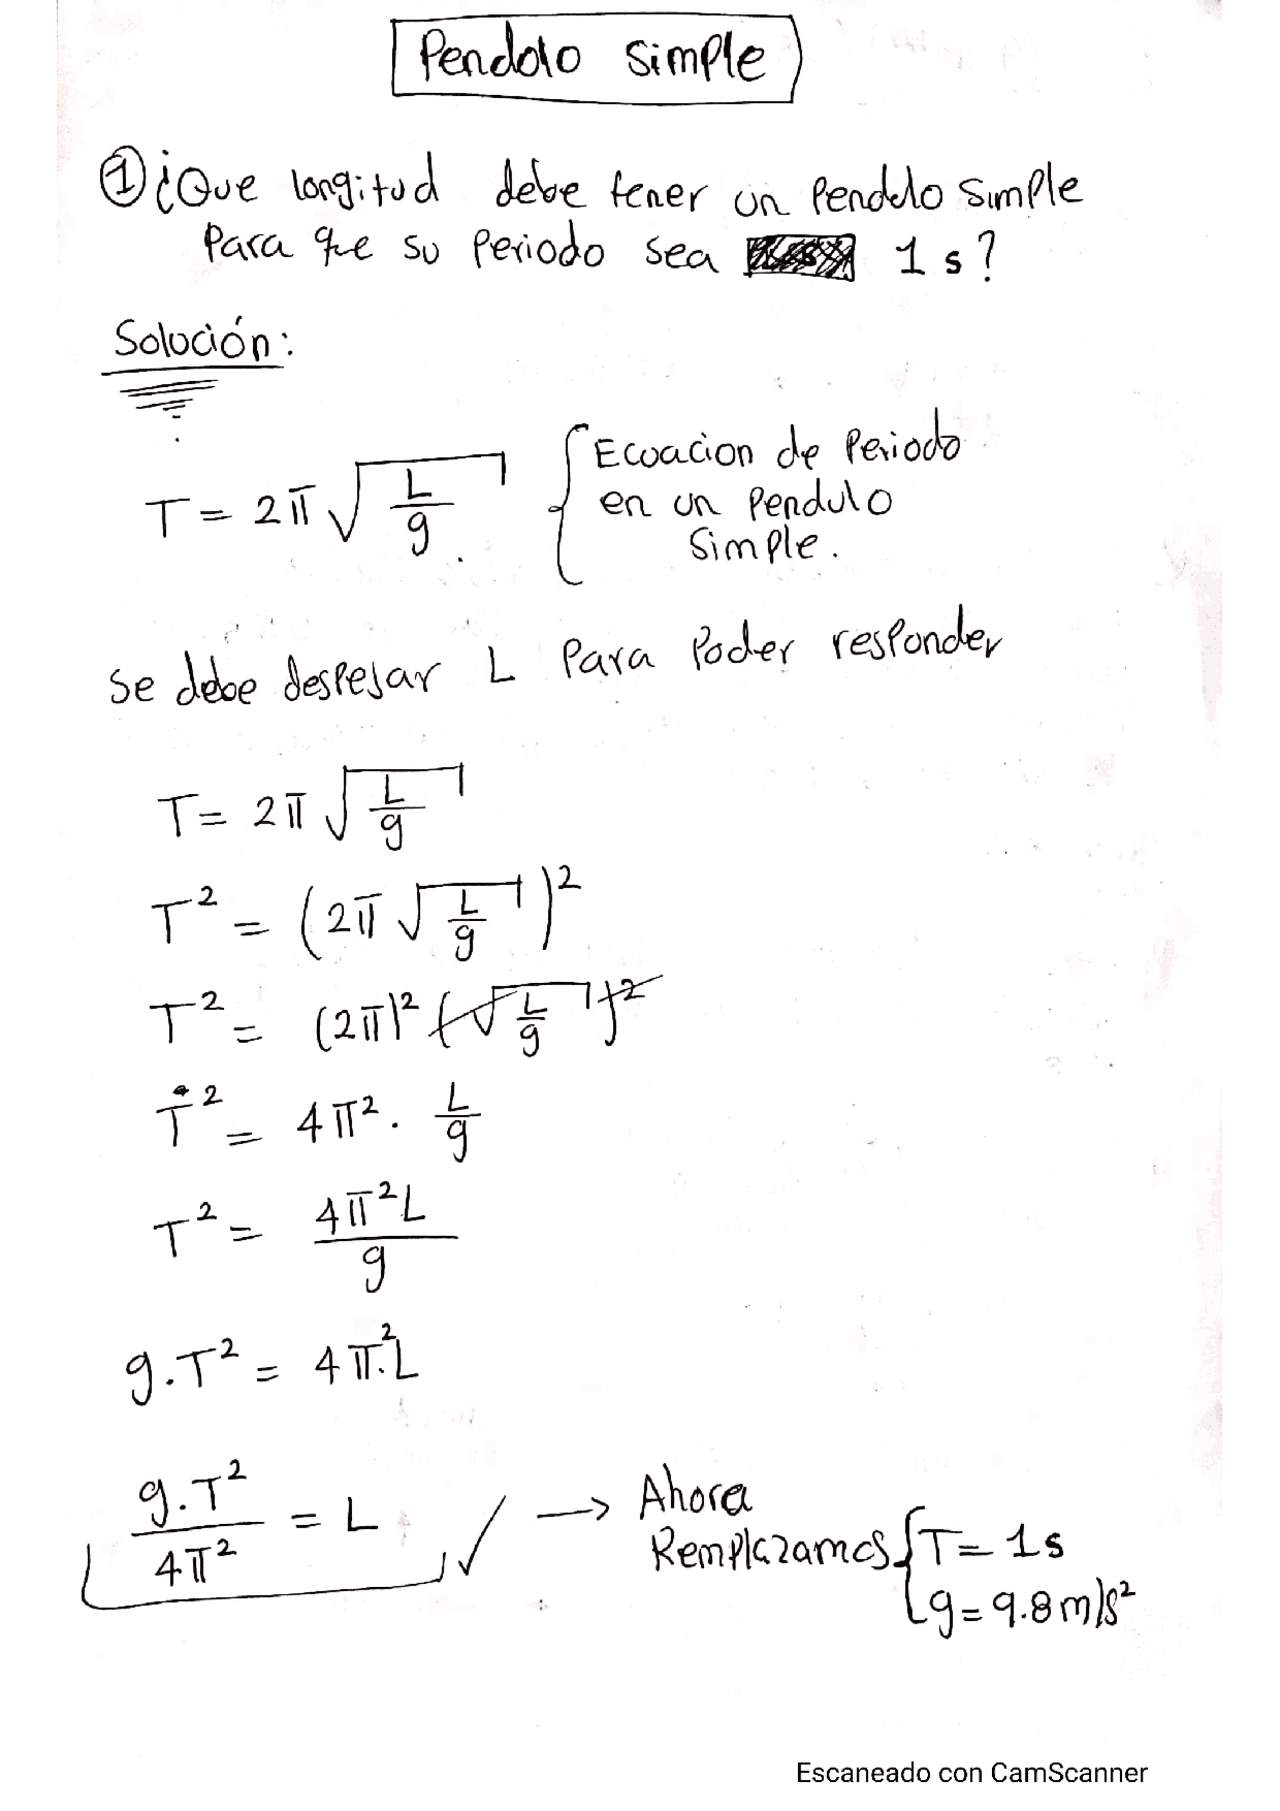 Pendolo simple
① ¿Que longitud debe tener un Pendulo Simple
Para que su Periodo sea 1 s?
Solución:
T = 2π √(L/g) { Ecuacion de Periodo
en un Pendulo
Simple.
Se debe despejar L Para Poder responder
T = 2π √(L/g)
T² = (2π √(L/g))²
T² = (2π)² (√(L/g))²
T² = 4π² . L/g
T² = 4π²L/g
g.T² = 4π².L
g.T²/4π² = L ✓ → Ahora
Remplazamos { T = 1s
g = 9.8 m/s²
Escaneado con CamScanner